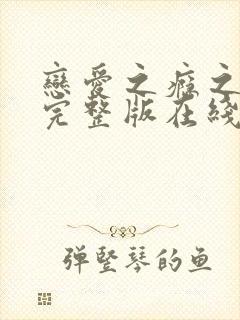 戀愛之癮之
完整版在綫
弹竖琴的鱼